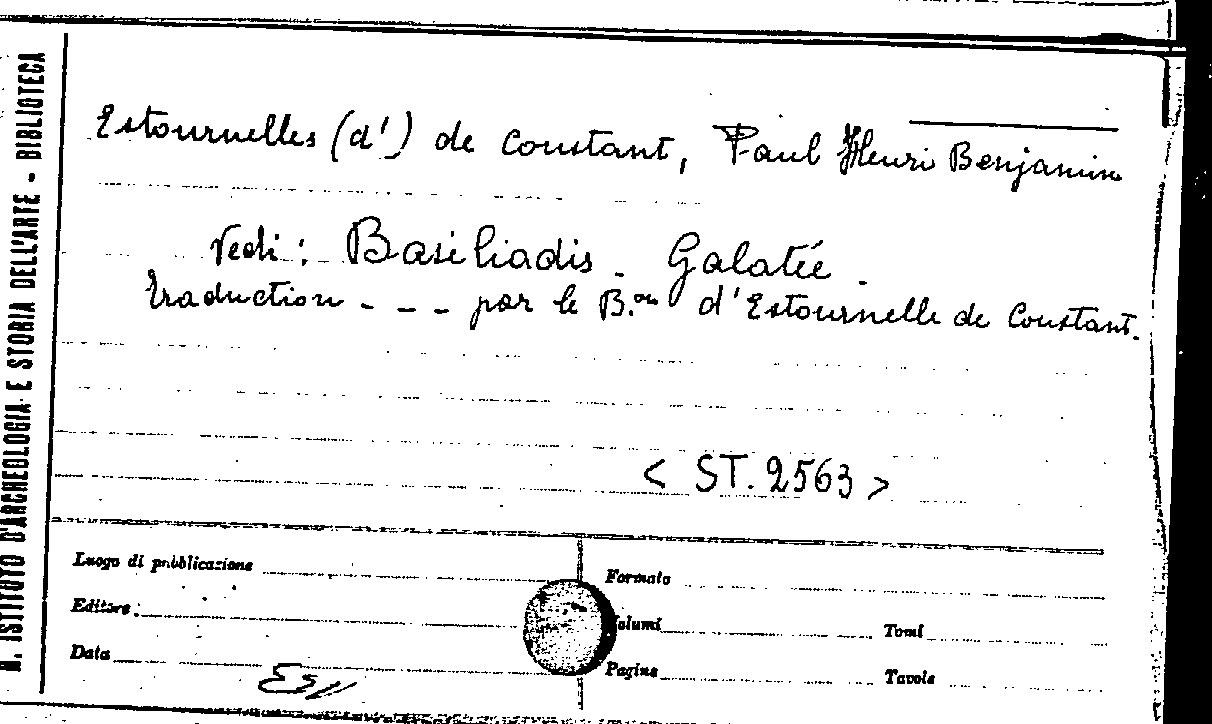 R. ISTITUTO D'ARCHEOLOGIA E STORIA DELL'ARTE - BIBLIOTECA
Estournelles (d') de Constant, Paul Henri Benjamin
Vedi: Basiliadis - Galatée.
traduction - - - par le B.on d'Estournelle de Constant.
< ST. 2563 >
Luogo di pubblicazione
Formato
Editore
Volumi
Tomi
Data
Pagine
Tavole